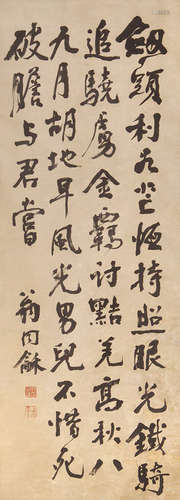 劔頭利若芒恒持照眼光鐵騎
追驍虜金羈討黠羌高秋八
九月胡地早風光男兒不惜死
破膽与君嘗
翁同龢